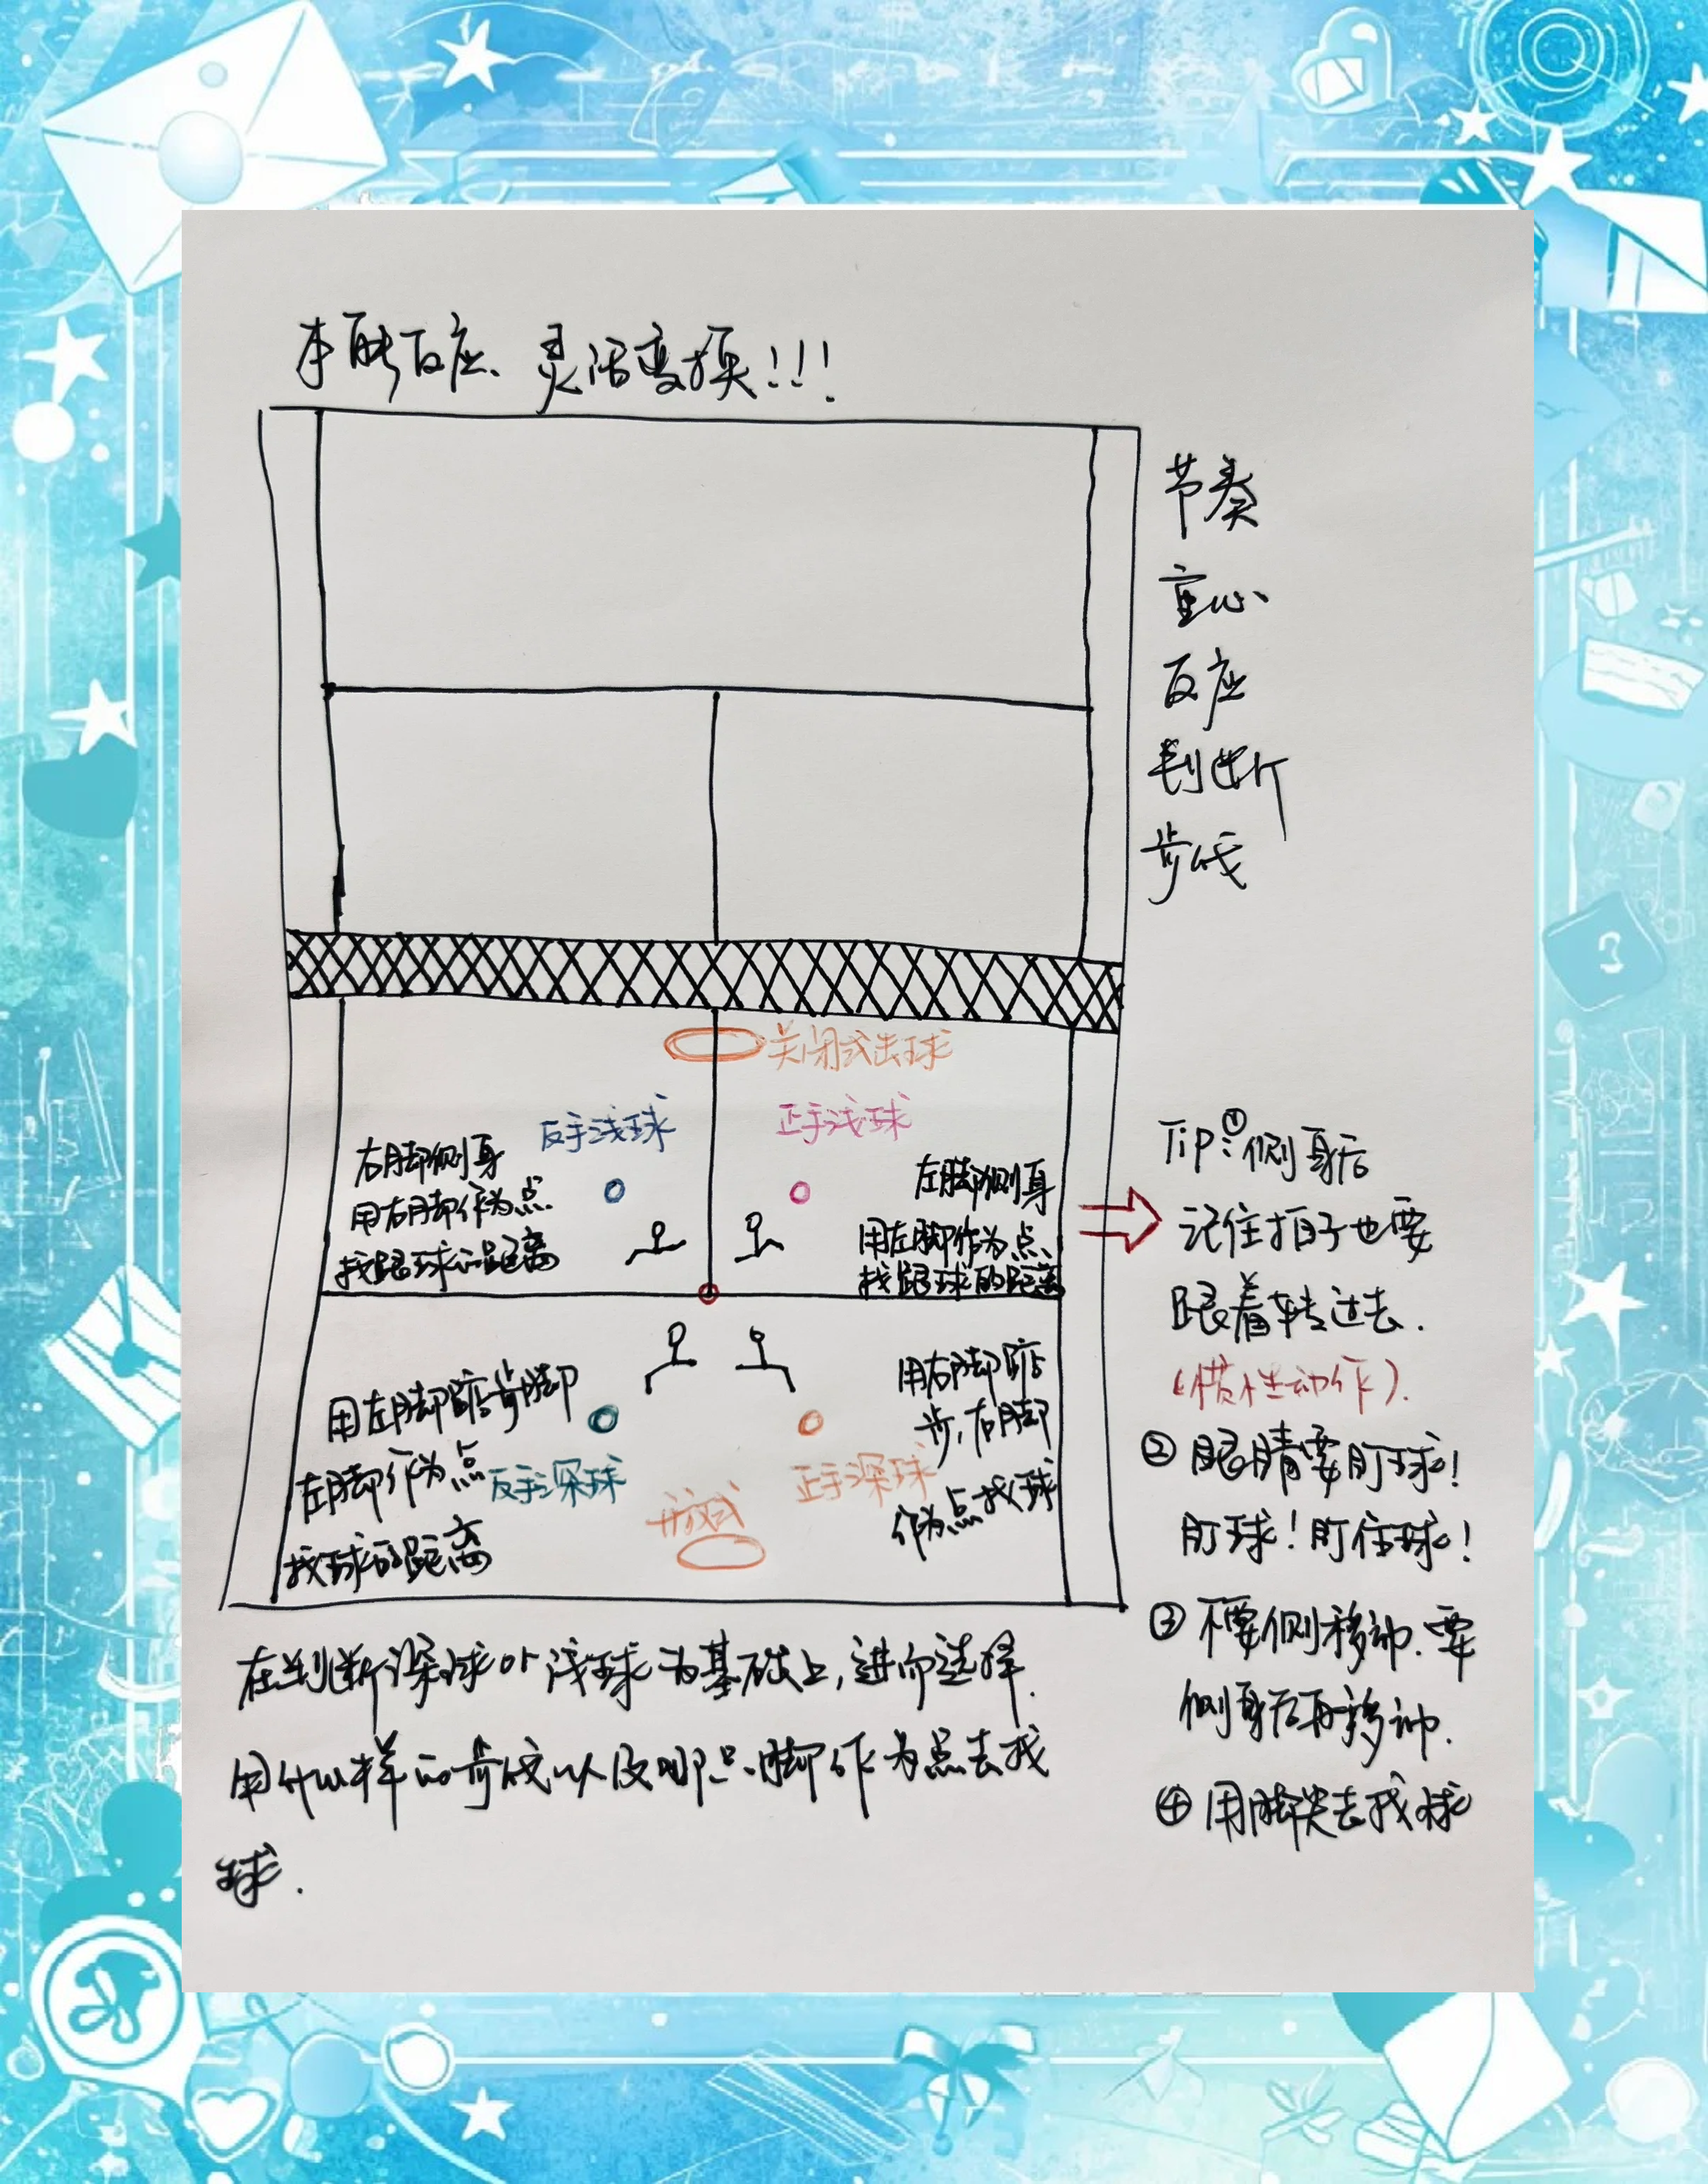 本能反应、灵活变换!!!
节奏
重心
反应
判断
步伐
关闭式击球
反手浅球
正手浅球
右脚侧身
用右脚作为点
找跟球的距离
左脚侧身
用左脚作为点、
找跟球的距离
用左脚踮步脚
左脚作为点
找球的距离
反手深球
正手深球
开放式
用右脚踮
步,右脚
作为点找球
Tip:①侧身后
记住拍子也要
跟着转过去.
(惯性动作).
②眼睛要盯球!
盯球!盯住球!
③不要侧移动.要
侧身后再移动.
④用脚尖去找球
在判断深球or浅球为基础上,进而选择.
用什么样的步伐以及哪只脚作为点去找
球.